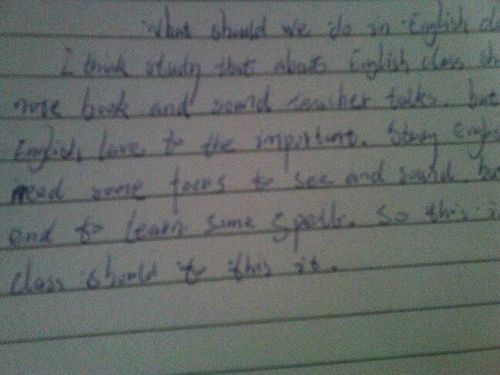 What should we do in English
I think study that about English class
nose book and sound teacher talks. but
English, Love to the important. Study
need some focus to see and sound
and to learn some spell. So this is
class should to this it.